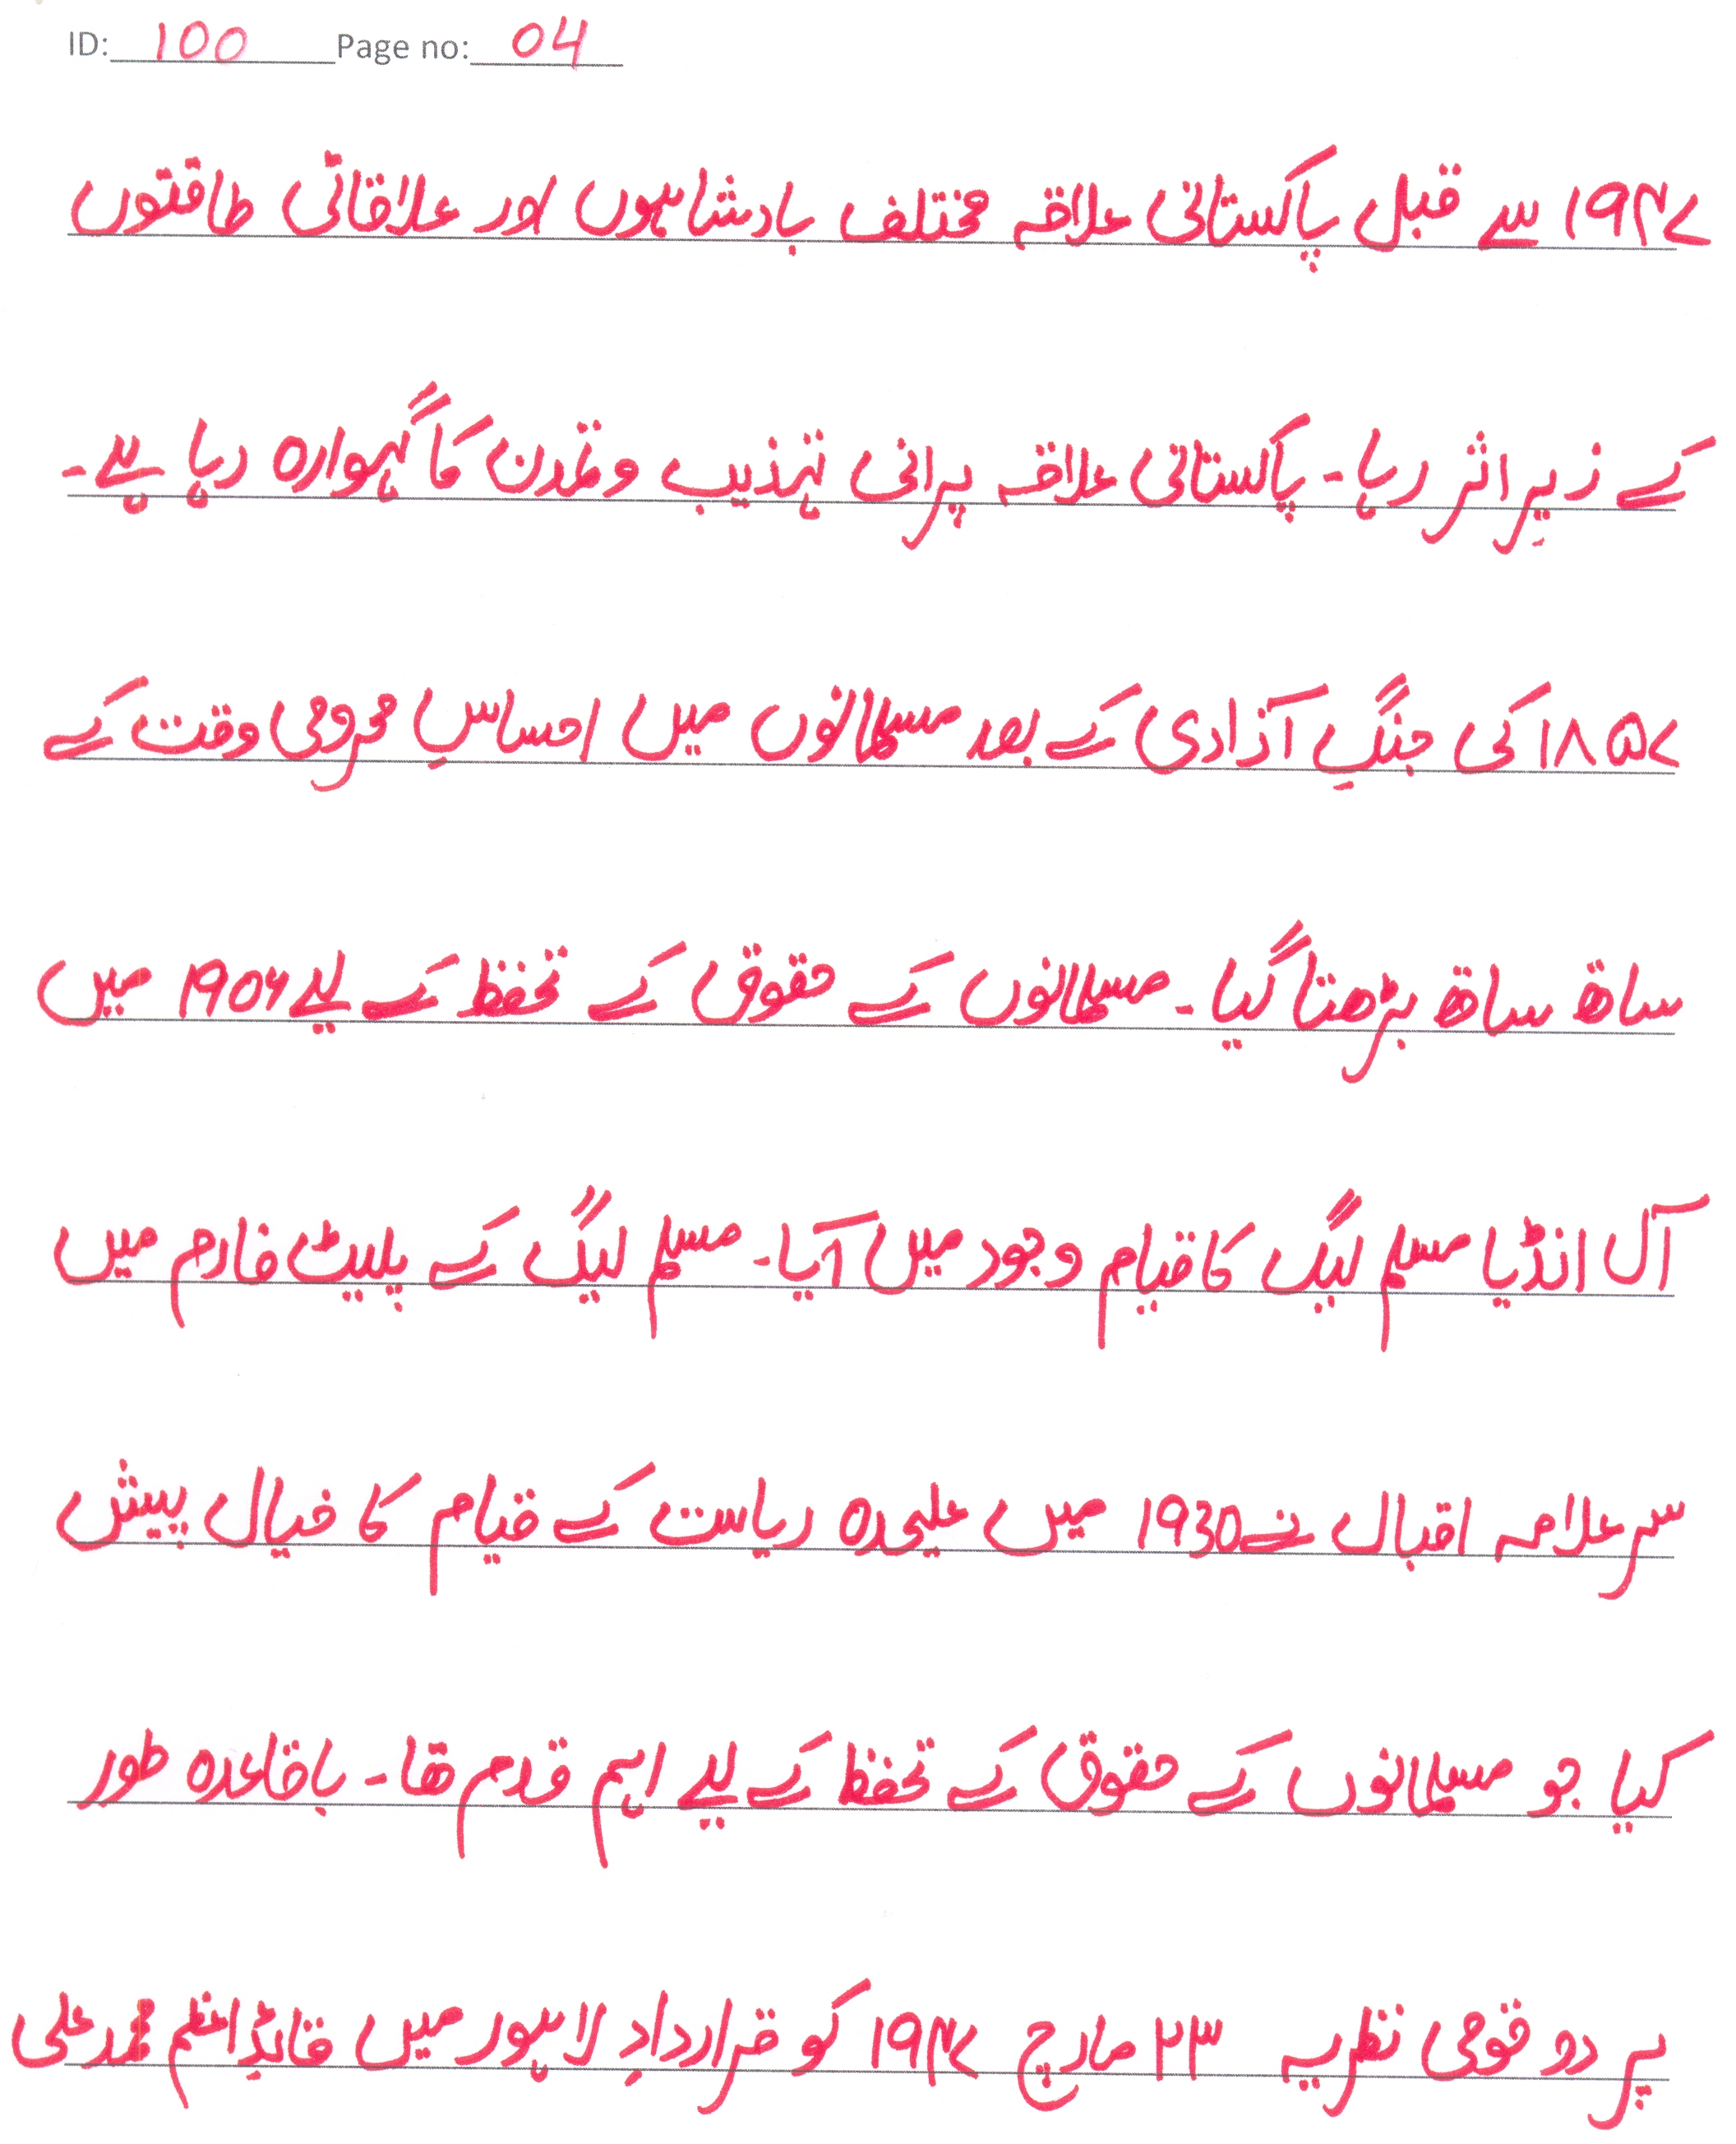 ID: 100 Page no: 04
۱۹۴۷ سے قبل پاکستانی علاقہ مختلف بادشاہوں اور علاقائی طاقتوں
کے زیرِ اثر رہا۔ پاکستانی علاقہ پرانی تہذیب و تمدن کا گہوارہ رہا ہے۔
۱۸۵۷ کی جنگِ آزادی کے بعد مسلمانوں میں احساسِ محرومی وقت کے
ساتھ ساتھ بڑھتا گیا۔ مسلمانوں کے حقوق کے تحفظ کے لیے ۱۹۰۶ میں
آل انڈیا مسلم لیگ کا قیام وجود میں آیا۔ مسلم لیگ کے پلیٹ فارم میں
سر علامہ اقبال نے 1930 میں علیحدہ ریاست کے قیام کا خیال پیش
کیا جو مسلمانوں کے حقوق کے تحفظ کے لیے اہم قدم تھا۔ باقاعدہ طور
پر دو قومی نظریہ ۲۳ مارچ ۱۹۴۷ کو قراردادِ لاہور میں قائدِ اعظم محمد علی